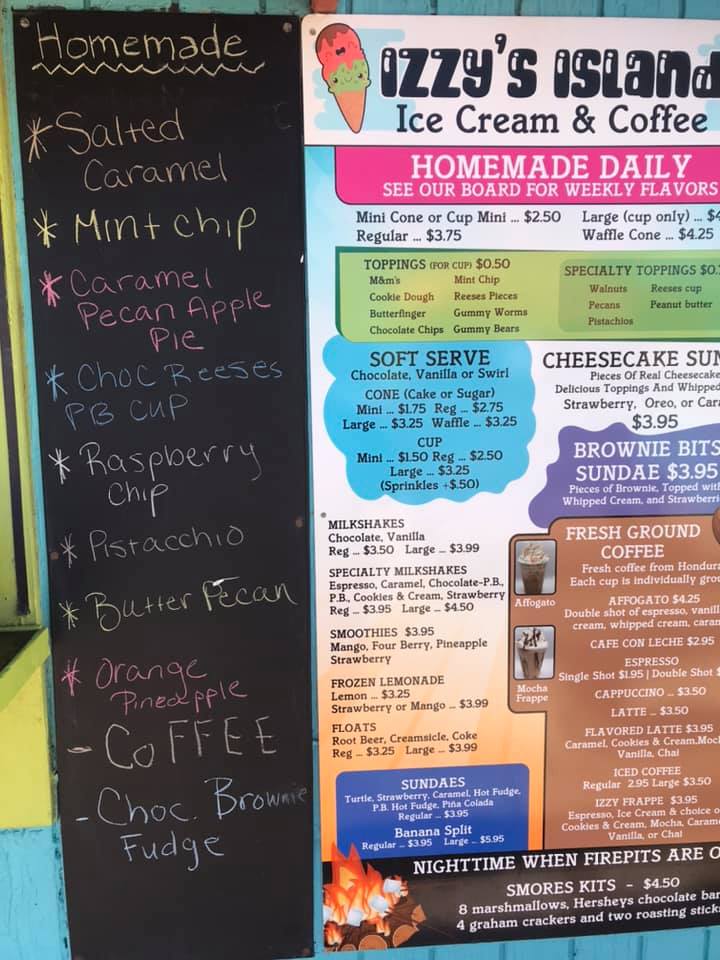 Homemade
* Salted
Caramel
* Mint chip
* Caramel
Pecan Apple
Pie
* Choc Reeses
PB CUP
* Raspberry
Chip
* Pistacchio
* Butter Pecan
* Orange
Pineapple
- COFFEE
- Choc. Brownie
Fudge
IZZY'S ISLAND
Ice Cream & Coffee
HOMEMADE DAILY
SEE OUR BOARD FOR WEEKLY FLAVORS
Mini Cone or Cup Mini ... $2.50
Regular ... $3.75
Large (cup only) ... $4
Waffle Cone ... $4.25
TOPPINGS (FOR CUP) $0.50
M&m's Mint Chip
Cookie Dough Reeses Pieces
Butterfinger Gummy Worms
Chocolate Chips Gummy Bears
SPECIALTY TOPPINGS $0.
Walnuts Reeses cup
Pecans Peanut butter
Pistachios
SOFT SERVE
Chocolate, Vanilla or Swirl
CONE (Cake or Sugar)
Mini ... $1.75 Reg ... $2.75
Large ... $3.25 Waffle ... $3.25
CUP
Mini ... $1.50 Reg ... $2.50
Large ... $3.25
(Sprinkles +$.50)
CHEESECAKE SUN
Pieces Of Real Cheesecake
Delicious Toppings And Whipped
Strawberry, Oreo, or Car
$3.95
BROWNIE BITS
SUNDAE $3.95
Pieces of Brownie, Topped with
Whipped Cream, and Strawberri
MILKSHAKES
Chocolate, Vanilla
Reg ... $3.50 Large ... $3.99
SPECIALTY MILKSHAKES
Espresso, Caramel, Chocolate-P.B.,
P.B., Cookies & Cream, Strawberry
Reg ... $3.95 Large ... $4.50
SMOOTHIES $3.95
Mango, Four Berry, Pineapple
Strawberry
FROZEN LEMONADE
Lemon ... $3.25
Strawberry or Mango ... $3.99
FLOATS
Root Beer, Creamsicle, Coke
Reg ... $3.25 Large ... $3.99
SUNDAES
Turtle, Strawberry, Caramel, Hot Fudge,
P.B. Hot Fudge, Piña Colada
Regular ... $3.95
Banana Split
Regular ... $3.95 Large ... $5.95
Affogato
Mocha
Frappe
FRESH GROUND
COFFEE
Fresh coffee from Hondura
Each cup is individually grou
AFFOGATO $4.25
Double shot of espresso, vanill
cream, whipped cream, caram
CAFE CON LECHE $2.95
ESPRESSO
Single Shot $1.95 | Double Shot $
CAPPUCCINO ... $3.50
LATTE ... $3.50
FLAVORED LATTE $3.95
Caramel, Cookies & Cream,Moc
Vanilla, Chai
ICED COFFEE
Regular 2.95 Large $3.50
IZZY FRAPPE $3.95
Espresso, Ice Cream & choice o
Cookies & Cream, Mocha, Caram
Vanilla, or Chai
NIGHTTIME WHEN FIREPITS ARE O
SMORES KITS - $4.50
8 marshmallows, Hersheys chocolate bar
4 graham crackers and two roasting stick